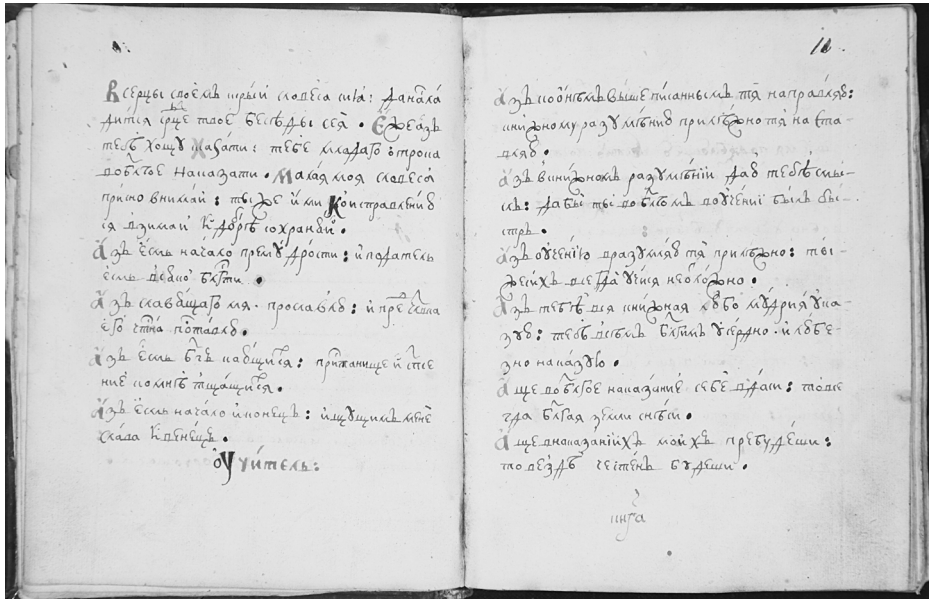 В серцы своемъ скрыи словеса сиѧ: да насла
дитсѧ срⷣце твое бесѣды сеѧ. Єже азъ
тебѣ хощу казати: тебе младаго отрока
во блг҃ое наказати. Малаѧ моѧ словеса
присно внимай: ты же ими ко исправленїю
сѧ взимай и добрѣ сохранѧй.
Азъ есмь начало премудрости: и податель
есмь всѧкой бл҃гости.
Азъ славѧщаго мѧ прославлю: и пред
его поставлю.
Азъ есмь всѣмъ бг҃ъ каѧщимсѧ: пристанище и спсе
ние ко мнѣ тщащимсѧ.
Азъ есмь начало и конецъ: ищущимъ мене
слава и венецъ.
Оучитель:
11
Азъ по онѣмъ выше писаннымъ тѧ направлѧю:
книжному разумѣнию прилѣжно тѧ наста
влѧю.
Азъ в книжномъ разумѣнїи даю тебѣ смы
слъ: дабы ты во блг҃омъ во учении былъ бы
стръ.
Азъ оучению вразумлѧю тѧ прилѣжно: ты
же ихъ всегда учисѧ неложно.
Азъ тебѣ всѧ книжнаѧ любомудриѧ ука
зую: тебѣ всѣмъ бл҃гимъ усердно и любе
зно наказую.
Аще во блг҃ое наказание себе вдаси: то все
гда блг҃аѧ земли снѣси.
Аще в наказанїихъ моихъ пребудеши:
то вездѣ честенъ будеши.